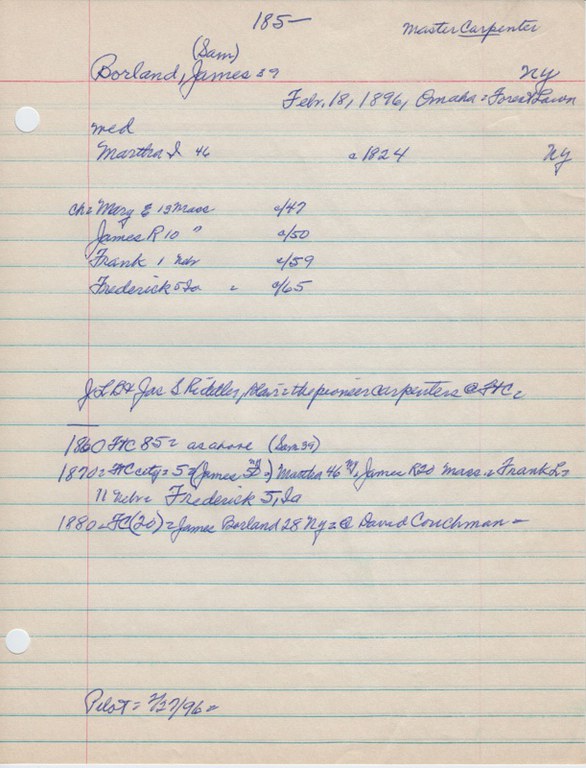 185—
Master Carpenter
(Sam)
Borland, James 39 NY
Febr, 18, 1896, Omaha = Forest Lawn
med
Martha I 46 c 1824 Ny
ch = Mary E 13 Mass c/47
James R 10 " c/50
Frank 1 Nebr c/59
Frederick 5 Ia = c/65
J L B & Jas S = the pioneer carpenters @ FtC =
1860 FtC 85 = as above (Sam 39)
1870 = FtC city = 5 = (James ) Martha 46 NY, James R 20 Mass = Frank L =
11 Nebr = Frederick 5, Ia
1880 = FC (20) = James Borland 28 Ny = @ David Couchman =
Pilot = 2/27/96 =